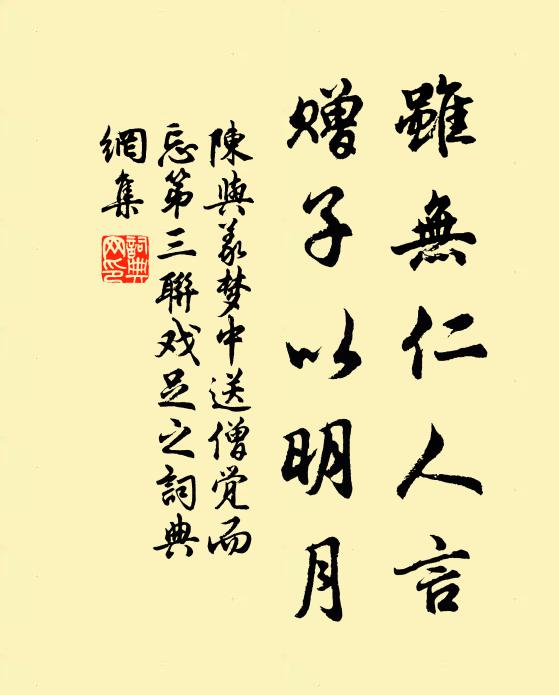 雖無仁人言
贈子以明月
陳與義梦中送僧觉而
忘第三聯戏足之詞典
網集
詞典
网印